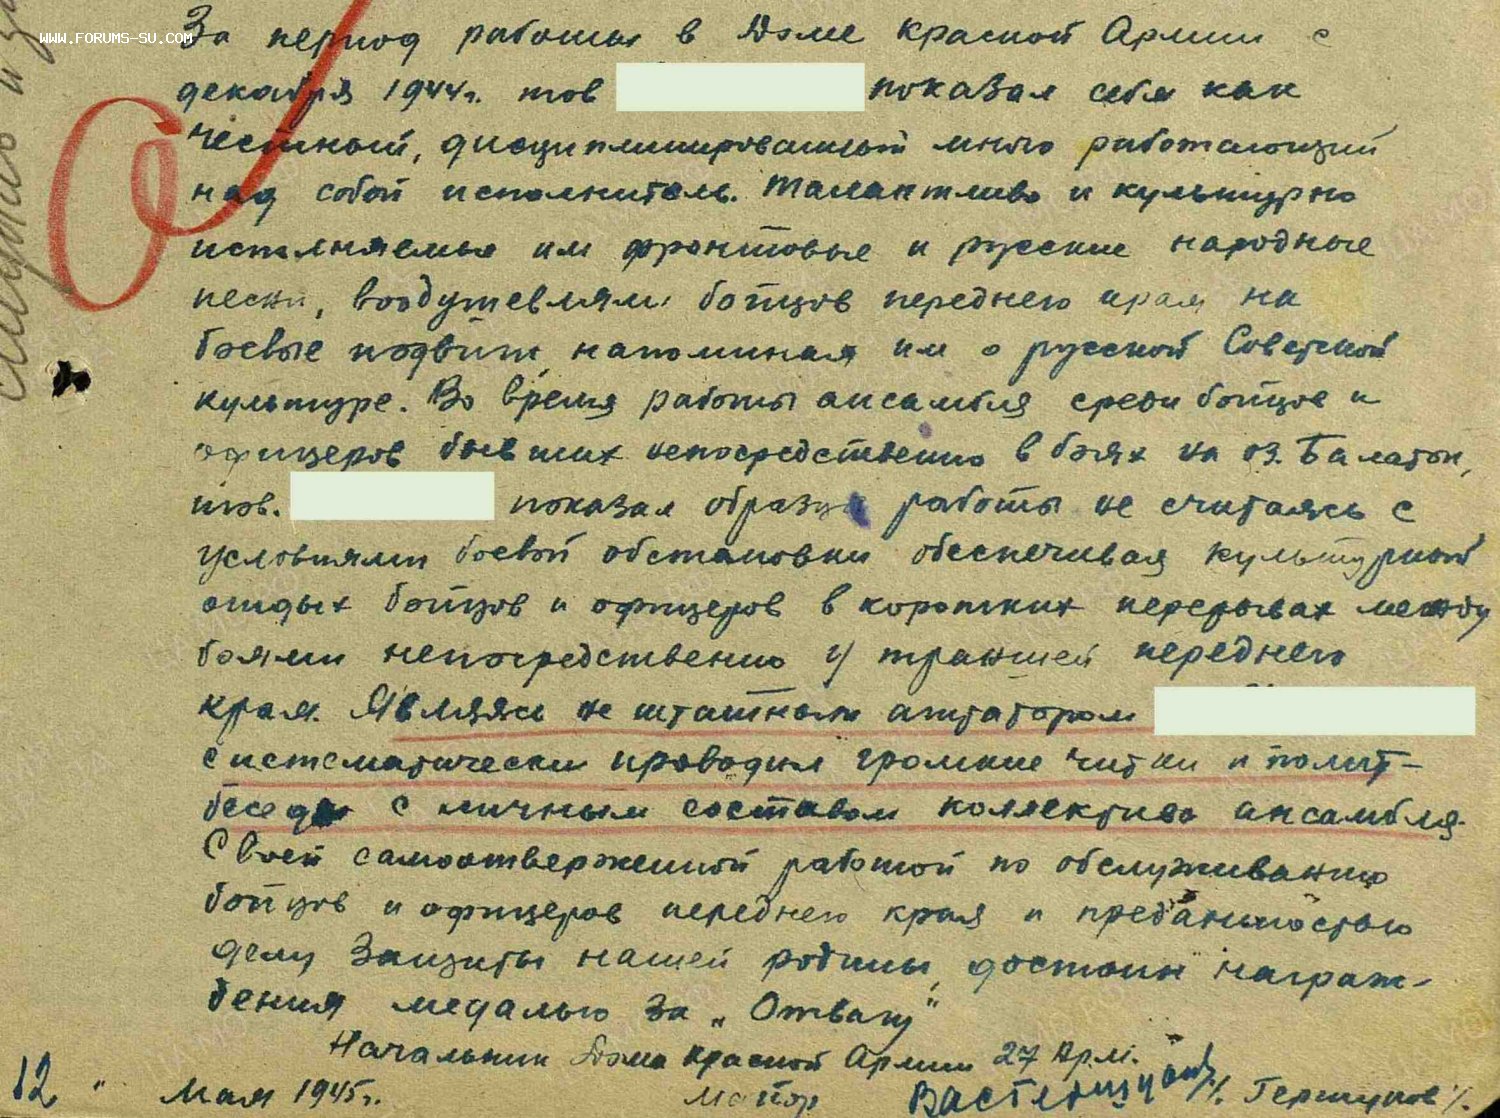 www.forums-su.com
За период работы в Доме Красной Армии с
декабря 1944г. тов показал себя как
честный, дисциплинированный много работающий
над собой исполнитель. Талантливо и культурно
исполняемые им фронтовые и русские народные
песни, воодушевляли бойцов переднего края на
боевые подвиги, напоминая им о русской Советской
культуре. Во время работы ансамбля среди бойцов и
офицеров бывших непосредственно в боях на оз. Балатон,
тов. показал образцы работы не считаясь с
условиями боевой обстановки обеспечивая культурный
отдых бойцов и офицеров в коротких перерывах между
боями непосредственно у траншей переднего
края. Являясь не штатным агитатором
систематически проводил громкие читки и полит-
беседы с личным составом коллектива ансамбля.
Своей самоотверженной работой по обслуживанию
бойцов и офицеров переднего края и преданностью
делу Защиты нашей родины, достоин награж-
дения медалью За „Отвагу"
Начальник Дома Красной Армии 27 Арм.
12 " мая 1945г. майор